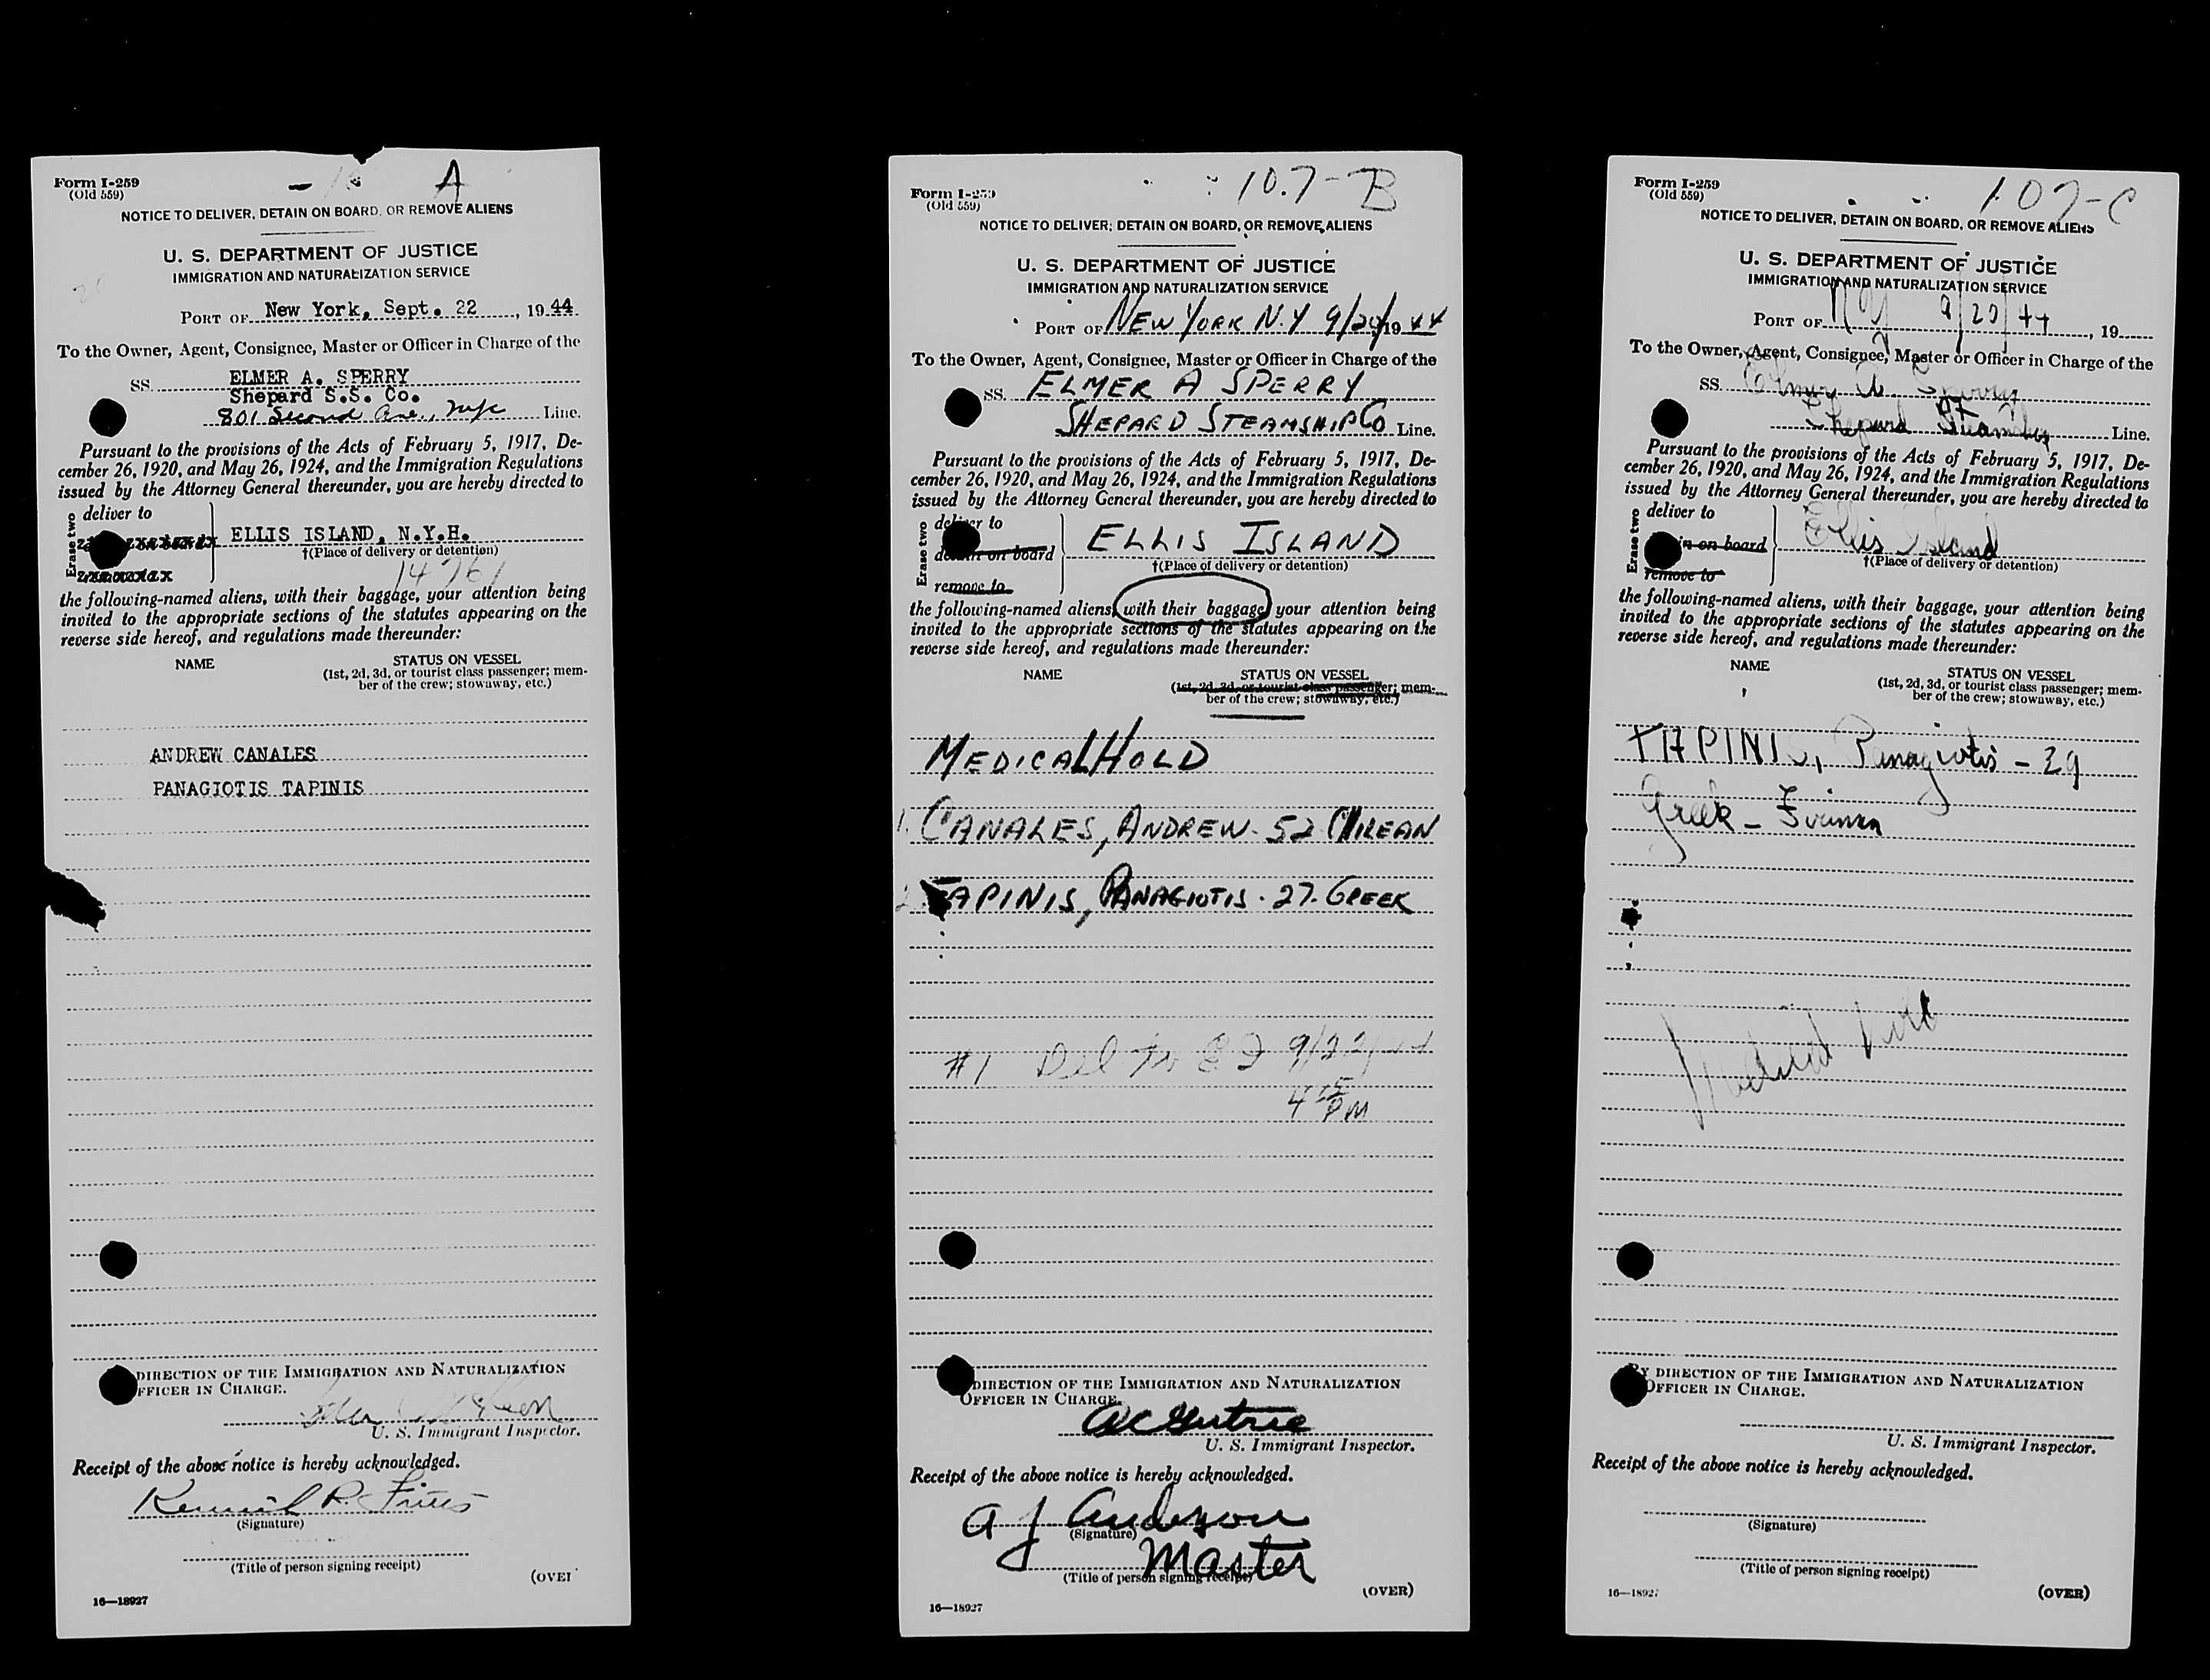 Form I-259
(Old 559)
A
NOTICE TO DELIVER, DETAIN ON BOARD, OR REMOVE ALIENS
U. S. DEPARTMENT OF JUSTICE
IMMIGRATION AND NATURALIZATION SERVICE
PORT OF New York, Sept. 22, 1944.
To the Owner, Agent, Consignee, Master or Officer in Charge of the
SS. ELMER A. SPERRY
Shepard S.S. Co.
801 Second Ave., nyc Line.
Pursuant to the provisions of the Acts of February 5, 1917, De-
cember 26, 1920, and May 26, 1924, and the Immigration Regulations
issued by the Attorney General thereunder, you are hereby directed to
Erase two
deliver to
ELLIS ISLAND, N.Y.H.
†(Place of delivery or detention)
14761
the following-named aliens, with their baggage, your attention being
invited to the appropriate sections of the statutes appearing on the
reverse side hereof, and regulations made thereunder:
NAME STATUS ON VESSEL
(1st, 2d, 3d, or tourist class passenger; mem-
ber of the crew; stowaway, etc.)
ANDREW CANALES
PANAGIOTIS TAPINIS
DIRECTION OF THE IMMIGRATION AND NATURALIZATION
OFFICER IN CHARGE.
U. S. Immigrant Inspector.
Receipt of the above notice is hereby acknowledged.
R.
(Signature)
(Title of person signing receipt)
(OVER
16—18927
Form I-259
(Old 559)
107-B
NOTICE TO DELIVER, DETAIN ON BOARD, OR REMOVE ALIENS
U. S. DEPARTMENT OF JUSTICE
IMMIGRATION AND NATURALIZATION SERVICE
PORT OF NEW YORK N.Y 9/20/1944
To the Owner, Agent, Consignee, Master or Officer in Charge of the
SS. ELMER A SPERRY
SHEPARD STEAMSHIP CO Line.
Pursuant to the provisions of the Acts of February 5, 1917, De-
cember 26, 1920, and May 26, 1924, and the Immigration Regulations
issued by the Attorney General thereunder, you are hereby directed to
Erase two
deliver to
detain on board
remove to
ELLIS ISLAND
†(Place of delivery or detention)
the following-named aliens, with their baggage, your attention being
invited to the appropriate sections of the statutes appearing on the
reverse side hereof, and regulations made thereunder:
NAME STATUS ON VESSEL
(1st, 2d, 3d, or tourist class passenger; mem-
ber of the crew; stowaway, etc.)
MEDICAL HOLD
1. CANALES, ANDREW - 52 CHILEAN
2 TAPINIS, PANAGIOTIS - 27 - GREEK
#1 Del to E I 9/22/44
4 15 PM
DIRECTION OF THE IMMIGRATION AND NATURALIZATION
OFFICER IN CHARGE.
U. S. Immigrant Inspector.
Receipt of the above notice is hereby acknowledged.
A J Anderson
(Signature)
Master
(Title of person signing receipt)
(OVER)
16—18927
Form I-259
(Old 559)
107-C
NOTICE TO DELIVER, DETAIN ON BOARD, OR REMOVE ALIENS
U. S. DEPARTMENT OF JUSTICE
IMMIGRATION AND NATURALIZATION SERVICE
PORT OF NY 9/20/44, 19
To the Owner, Agent, Consignee, Master or Officer in Charge of the
SS. Elmer A. Sperry
Shepard Steamship Line.
Pursuant to the provisions of the Acts of February 5, 1917, De-
cember 26, 1920, and May 26, 1924, and the Immigration Regulations
issued by the Attorney General thereunder, you are hereby directed to
Erase two
deliver to
in on board
remove to
Ellis Island
†(Place of delivery or detention)
the following-named aliens, with their baggage, your attention being
invited to the appropriate sections of the statutes appearing on the
reverse side hereof, and regulations made thereunder:
NAME STATUS ON VESSEL
(1st, 2d, 3d, or tourist class passenger; mem-
ber of the crew; stowaway, etc.)
TAPINIS, Panagiotis - 29
Greek - Fireman
Medical hold
BY DIRECTION OF THE IMMIGRATION AND NATURALIZATION
OFFICER IN CHARGE.
U. S. Immigrant Inspector.
Receipt of the above notice is hereby acknowledged.
(Signature)
(Title of person signing receipt)
(OVER)
16—18927